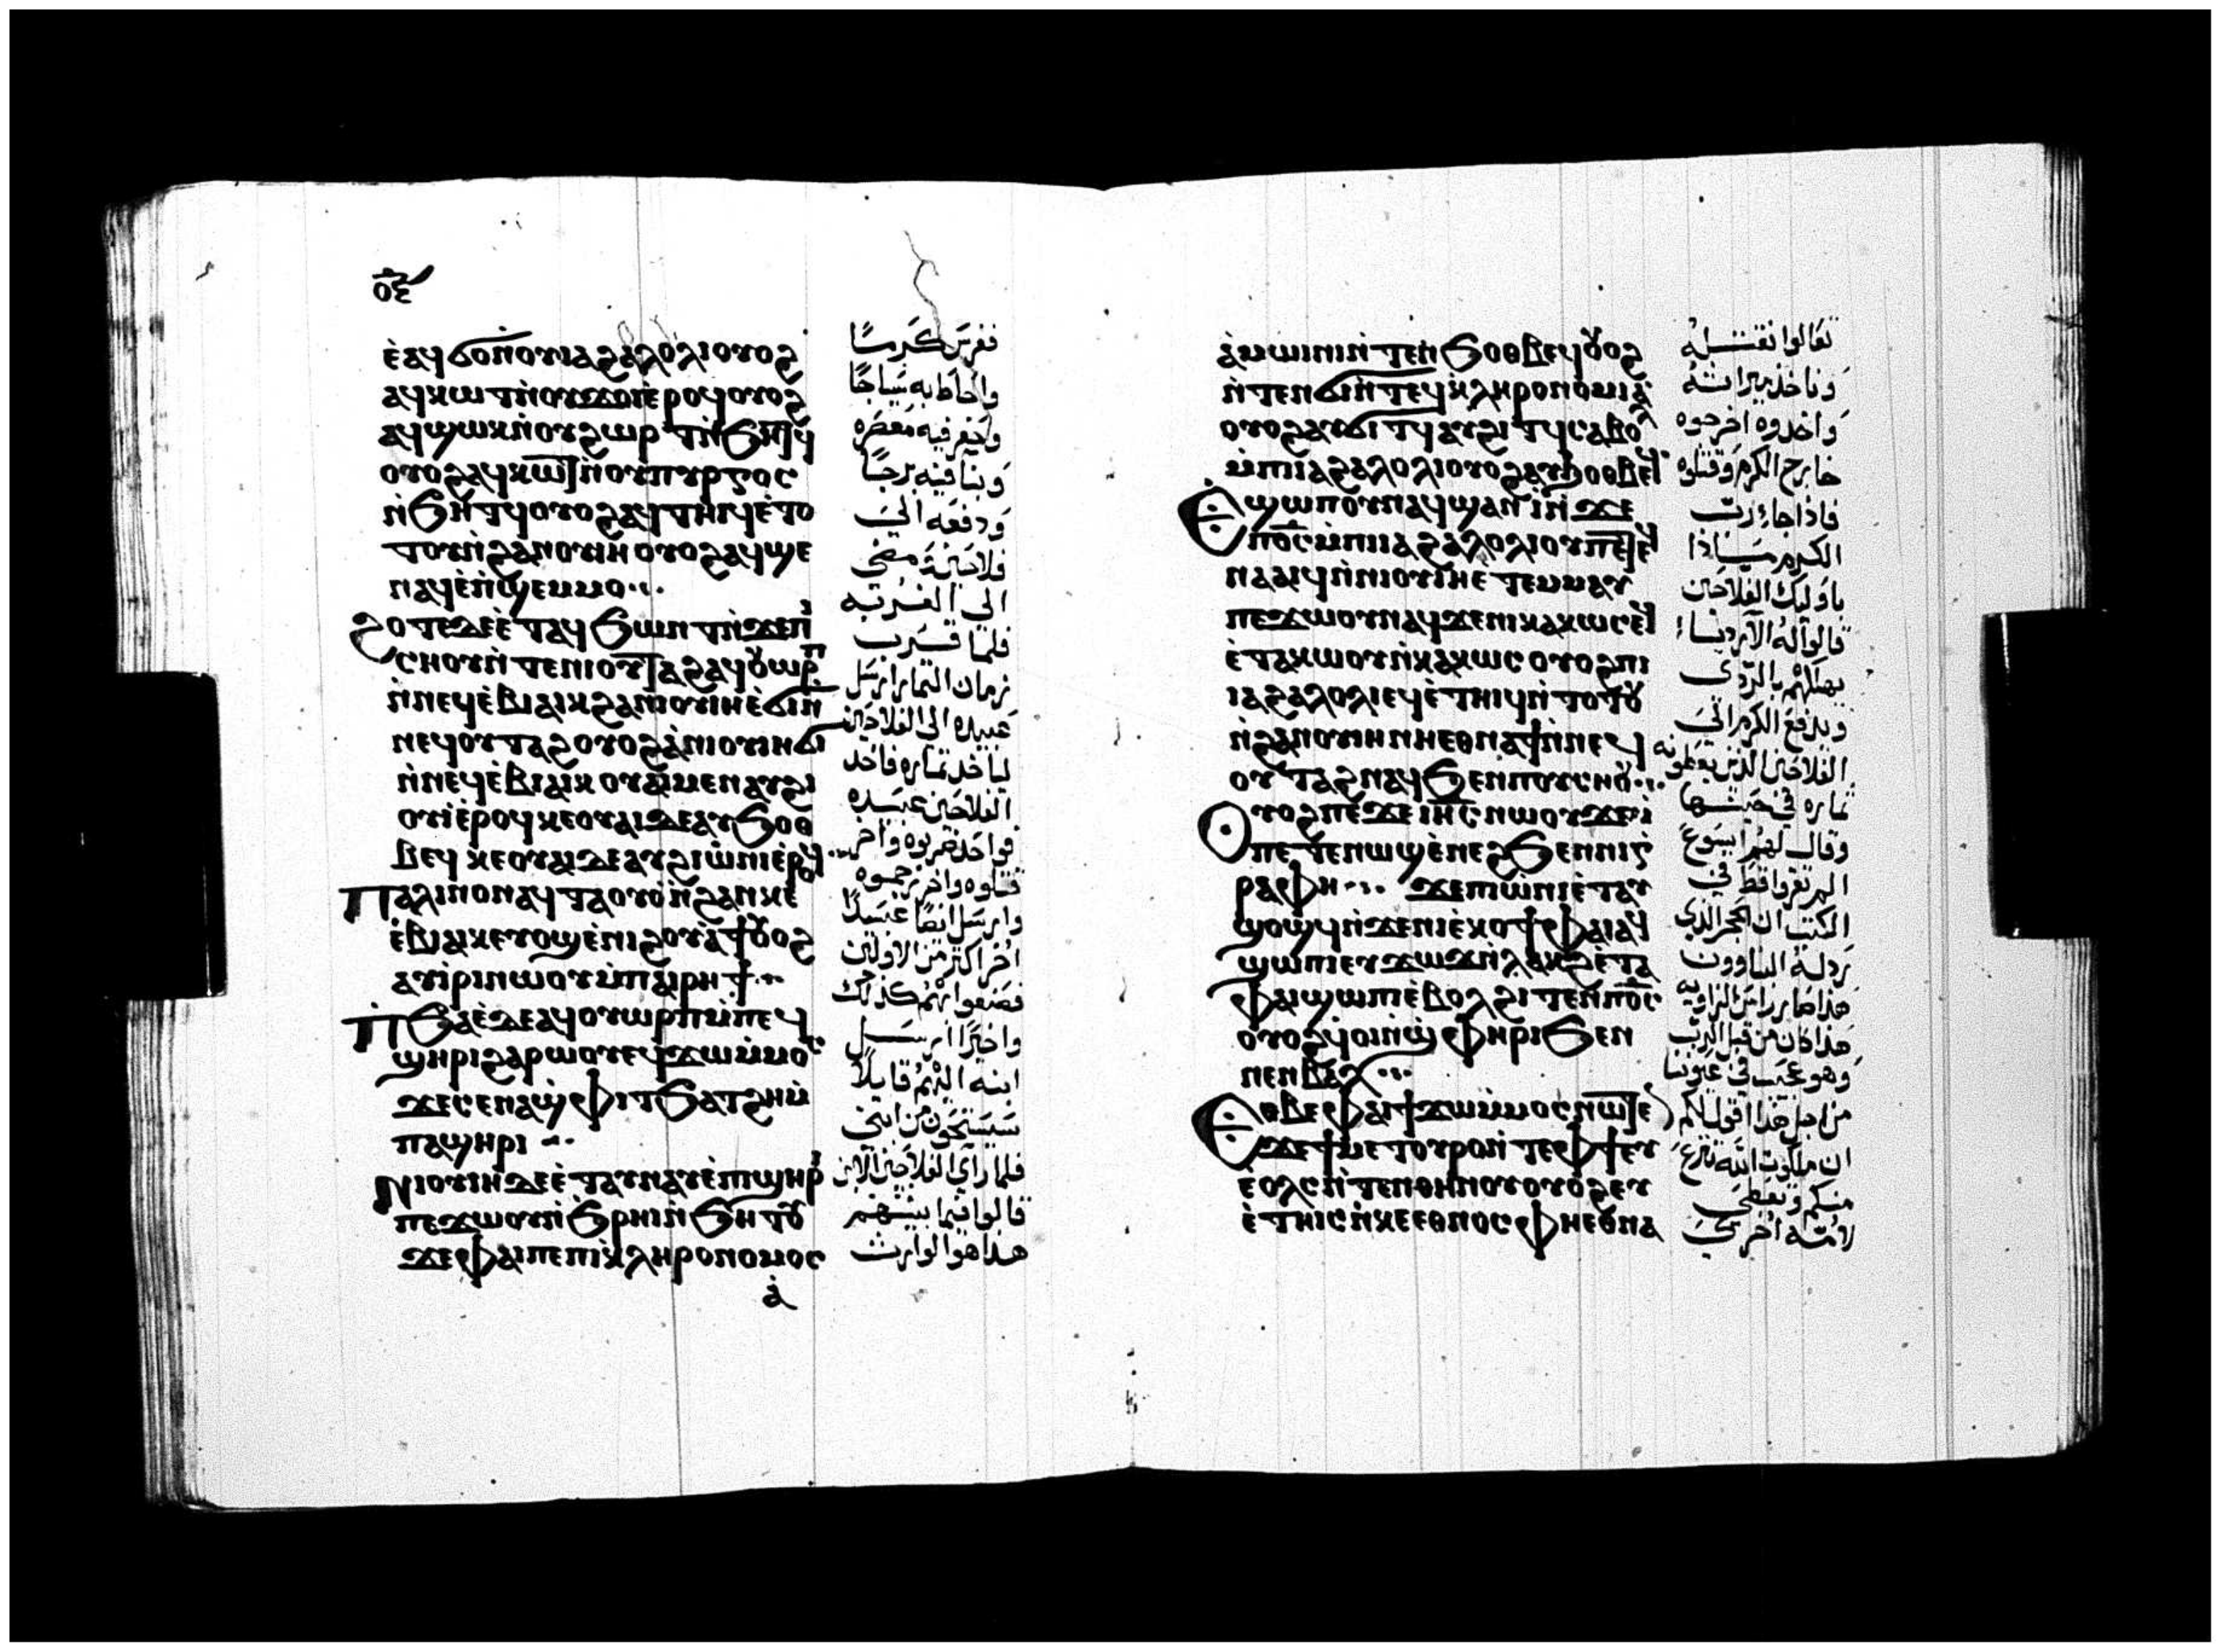 ⲟⲉ
ⲉ̀ⲁϥϭⲟ ⲛ̀ⲟⲩⲓⲁϩⲁⲗⲟⲗⲓ ⲟⲩⲟϩ
ⲁϥⲕⲱϯ ⲛ̀ⲟⲩϫⲟⲓ ⲉ̀ⲣⲟϥ ⲟⲩⲟϩ
ⲁϥϣⲱⲕ ⲛ̀ⲟⲩϩⲣⲱⲧ ⲛ̀ϧⲏⲧϥ
ⲟⲩⲟϩ ⲁϥⲕⲱⲧ ⲛ̀ⲟⲩⲡⲩⲣⲅⲟⲥ
ⲛ̀ϧⲏⲧϥ ⲟⲩⲟϩ ⲁϥⲧⲏⲓϥ ⲉ̀ⲧⲟ
ⲧⲟⲩ ⲛ̀ϩⲁⲛⲟⲩⲓⲏ ⲟⲩⲟϩ ⲁϥϣⲉ
ⲛⲁϥ ⲉ̀ⲡ̀ϣⲉⲙⲙⲟ
ϩⲟⲧⲉ ⲇⲉ ⲉ̀ⲧⲁϥϧⲱⲛⲧ ⲛ̀ϫⲉ ⲡ̀
ⲥⲏⲟⲩ ⲛ̀ⲧⲉ ⲡⲓⲟⲩⲧⲁϩ ⲁϥⲟⲩⲱⲣⲡ
ⲛ̀ⲛⲉϥⲉ̀ⲃⲓⲁⲓⲕ ϩⲁ ⲛⲓⲟⲩⲓⲏ ⲉ̀ϭⲓ ⲛ̀
ⲛⲉϥⲟⲩⲧⲁϩ ⲟⲩⲟϩ ⲁ̀ ⲛⲓⲟⲩⲓⲏ ϭⲓ
ⲛ̀ⲛⲉϥⲉ̀ⲃⲓⲁⲓⲕ ⲟⲩⲁⲓ ⲙⲉⲛ ⲁⲩϩⲓ
ⲟⲩⲓ̀ ⲉ̀ⲣⲟϥ ⲕⲉⲟⲩⲁⲓ ⲇⲉ ⲁⲩϧⲟⲑ
ⲃⲉϥ ⲕⲉⲟⲩⲁⲓ ⲇⲉ ⲁⲩϩⲓⲱ̀ⲛⲓ ⲉ̀ⲣⲟϥ
Ⲡⲁⲗⲓⲛ ⲟⲛ ⲁϥⲧⲁⲟⲩⲟ̀ ⲛ̀ϩⲁⲛⲕⲉ
ⲉ̀ⲃⲓⲁⲓⲕ ⲉⲩⲟϣ ⲉ̀ⲛⲓϩⲟⲩⲁ̀ϯ ⲟⲩⲟϩ
ⲁⲩⲓ̀ⲣⲓ ⲛⲱⲟⲩ ⲙ̀ⲡⲁⲓⲣⲏϯ
Ⲡ̀ϧⲁⲉ̀ ⲇⲉ ⲁϥⲟⲩⲱⲣⲡ ⲙ̀ⲡⲉϥ
ϣⲏⲣⲓ ϩⲁⲣⲱⲟⲩ ⲉϥϫⲱ ⲙ̀ⲙⲟⲥ
ϫⲉ ⲥⲉⲛⲁϣⲫⲓⲧ ϧⲁⲧϩⲏ ⲙ̀
ⲡⲁϣⲏⲣⲓ
Ⲛⲓⲟⲩⲓⲏ ⲇⲉ ⲉ̀ⲧⲁⲩⲛⲁⲩ ⲉ̀ⲡϣⲏⲣⲓ
ⲡⲉϫⲱⲟⲩ ⲛ̀ϧⲣⲏⲓ ⲛ̀ϧⲏⲧⲟⲩ
ϫⲉ ⲫⲁⲓ ⲡⲉ ⲡⲓⲕ̀ⲗⲏⲣⲟⲛⲟⲙⲟⲥ
ⲁ̀
فغرس كرمًا
واحاط به سياجًا
وحفر فيه معصره
وبنا فيه برجًا
ودفعه الى
فلاحين ومضى
الى الغربه
فلما قرب
زمان الثمار ارسل
عبيده الى الفلاحين
لياخد ثماره فاخد
الفلاحين عبيده
فواحد ضربوه واخر
قتلوه واخر رجموه
وارسل ايضًا عبيدًا
اخر اكثر من الاولين
فصنعوا بهم كذلك
واخيرًا ارسل
ابنه اليهم قايلًا
سيستحون من ابني
فلما راي الفلاحين الابن
قالوا فيما بينهم
هذا هو الوارث
ⲁ̀ⲙⲱⲓⲛⲓ ⲛ̀ⲧⲉⲛϧⲟⲑⲃⲉϥ ⲟⲩⲟϩ
ⲛ̀ⲧⲉⲛϭⲓ ⲛ̀ⲧⲉϥⲕ̀ⲗⲏⲣⲟⲛⲟⲙⲓⲁ̀
ⲟⲩⲟϩ ⲁⲩϭⲓⲧϥ ⲁⲩϩⲓⲧϥ ⲥⲁⲃⲟⲗ
ⲙ̀ⲡⲓⲓⲁϩⲁⲗⲟⲗⲓ ⲟⲩⲟϩ ⲁⲩϧⲟⲑⲃⲉϥ
Ⲉϣⲱⲡ ⲟⲩⲛ ⲁϥϣⲁⲛⲓ̀ ⲛ̀ϫⲉ
ⲡϭⲟⲥ ⲙ̀ⲡⲓⲓⲁϩⲁⲗⲟⲗⲓ ⲟⲩ ⲡⲉⲧⲉϥ
ⲛⲁⲁⲓϥ ⲛ̀ⲛⲓⲟⲩⲓⲏ ⲉ̀ⲧⲉⲙⲙⲁⲩ
ⲡⲉϫⲱⲟⲩ ⲛⲁϥ ϫⲉ ⲛⲓⲕⲁⲕⲱⲥ ⲉϥ
ⲉ̀ⲧⲁⲕⲱⲟⲩ ⲛ̀ⲕⲁⲕⲱⲥ ⲟⲩⲟϩ ⲡⲓ
ⲓⲁϩⲁⲗⲟⲗⲓ ⲉϥⲉ̀ⲧⲏⲓϥ ⲛ̀ⲧⲟⲧⲟⲩ
ⲛ̀ϩⲁⲛⲟⲩⲓⲏ ⲛⲏⲉⲑⲛⲁϯ ⲛ̀ⲛⲉϥ
ⲟⲩⲧⲁϩ ⲛⲁϥ ϧⲉⲛ ⲡⲟⲩⲥⲏⲟⲩ
Ⲟⲩⲟϩ ⲡⲉϫⲉ ⲓⲏⲥ ⲛⲱⲟⲩ ϫⲉ ⲙ̀
ⲡⲉⲧⲉⲛⲱϣ ⲉ̀ⲛⲉϩ ϧⲉⲛ ⲛⲓⲅ̀
ⲣⲁⲫⲏ ϫⲉ ⲡⲓⲱ̀ⲛⲓ ⲉ̀ⲧⲁⲩ
ϣⲟϣϥ ⲛ̀ϫⲉ ⲛⲓⲉ̀ⲕⲟϯ ⲫⲁⲓ ⲁϥ
ϣⲱⲡⲓ ⲉⲩϫⲱϫ ⲛ̀ⲗⲁⲕϩ ⲉ̀ⲧⲁ
ⲫⲁⲓ ϣⲱⲡⲓ ⲉ̀ⲃⲟⲗ ϩⲓⲧⲉⲛ ⲡϭⲟⲥ
ⲟⲩⲟϩ ϥⲟⲓ ⲛ̀ϣ̀ⲫⲏⲣⲓ ϧⲉⲛ
ⲛⲉⲛⲃⲁⲗ
Ⲉⲑⲃⲉ ⲫⲁⲓ ϯϫⲱ ⲙ̀ⲙⲟⲥ ⲛⲱⲧⲉⲛ
ϫⲉ ϯⲙⲉⲧⲟⲩⲣⲟ ⲛ̀ⲧⲉ ⲫϯ ⲉⲩ
ⲉ̀ⲟⲗⲥ ⲛ̀ⲧⲉⲛ ⲑⲏⲛⲟⲩ ⲟⲩⲟϩ ⲉⲩ
ⲉ̀ⲧⲏⲓⲥ ⲛ̀ⲕⲉⲉⲑⲛⲟⲥ ⲫⲏⲉⲑⲛⲁ
تعالوا نقتله
وناخد ميراثه
واخدوه اخرجوه
خارج الكرم وقتلوه
فاذا جا رب
الكرم ماذا
باوليك الفلاحين
قالوا له الاردياء
يهلكهم بالردى
ويدفع الكرم الى
الفلاحين الذين يعطونه
ثماره في حينها
وقال لهم ايسوع
الم تقروا قط في
الكتب ان الحجر الذي
ردله البناوون
هذا صار راس الزاويه
هذا كان من قبل الرب
وهو عجب في عيوننا
من اجل هذا اقول لكم
ان ملكوت الله تنزع
منكم وتعطى
لامة اخرى